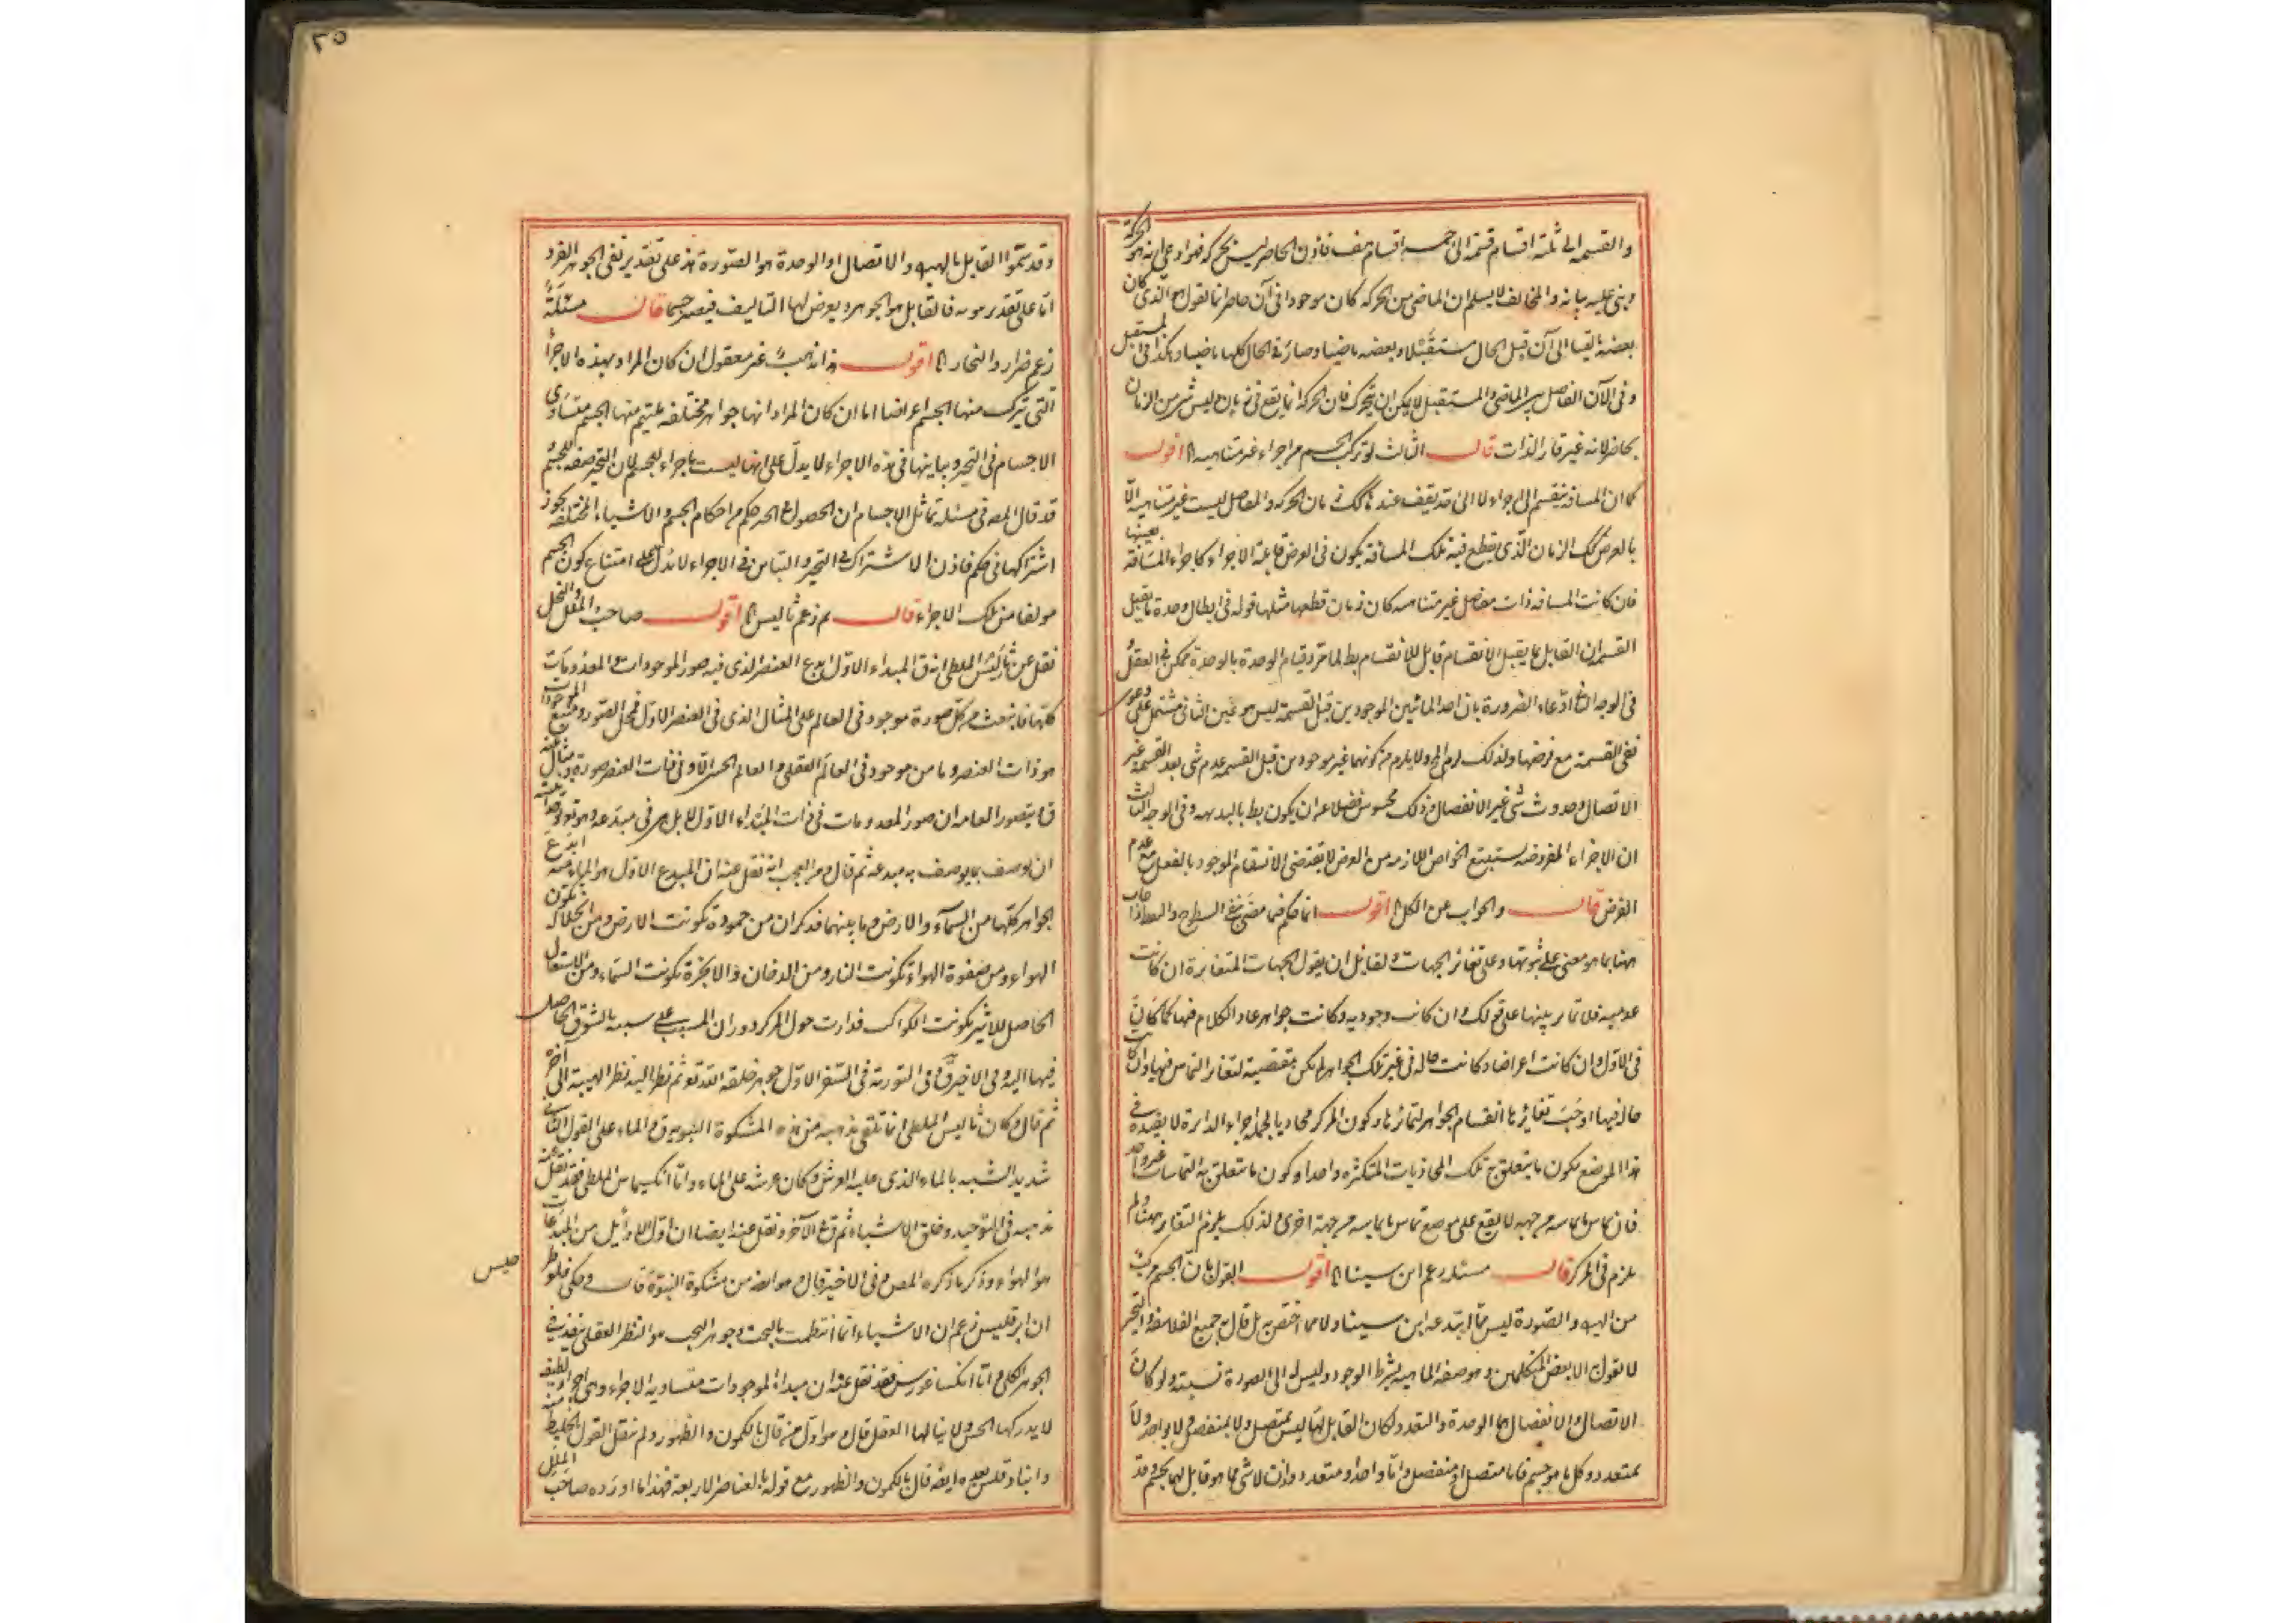 والقسمه الى ثلثة اقسام قسمة الى خمسه اقسام هف فاذن الحاضر ليس بحركه فهو
وبنى عليه بيانه والمخالف لا يسلم ان الماضى من الحركه كان موجودا فى آن حاضر انما يقول هو الذى كان
بعضه بالقياس الى آن قبل الحال مستقبلا وبعضه ماضيا وصار فى الحال كلها ماضيا وهكذا فى المستقبل
وفى الآن الفاصل بين الماضى والمستقبل لا يمكن ان يتحرك فان الحركه انما يقع فى زمان وليس شىء من الزمان
بحاضر لانه غير قار الذات قال الثالث لو تركب الجسم من اجزاء غير متناهيه اقول
كما ان المسافه ينقسم الى اجزاء لا الى حد يقف عنده كك زمان الحركه والمفاصل ليست غير متناهية الا
بالعرض كك الزمان الذى يقطع فيه تلك المسافة يكون فى العرض الاجزاء كاجزاء المسافة بعينها
فان كانت المسافه ذات مفاصل غير متناهيه كان زمان قطعها مثلها قوله فى ابطال وحدة ما يقبل
القسمه ان القابل بما يقبل الانقسام قابل للانقسام بط لما مر وقيام الوحدة بالوحدة ممكن فى العقل
فى الوجه ادعاء الضرورة بان احد المائين الموجودين قبل القسمة ليس هو عين الثانى مشتمل على دعوى
نفى القسمة مع فرضها ولذلك لزم المح ولا يلزم من كونهما غير موجودين قبل القسمه عدم شى بعد القسمة غير
الاتصال وحدوث شئ غير الانفصال وذلك محسوس فضلا عن ان يكون بط بالبديهه وفى الوجه الثالث
ان الاجزاء المفروضه يستتبع الخواص اللازمه من العرض لا يقتضى الانقسام الموجود بالفعل مع عدم
الفرض قال والجواب عن الكل اقول انما حكم فيما مضى بنفى السطوح
ههنا بما هو معنى على ثبوتها وعلى تغاير الجهات ولقايل ان يقول الجهات المتغايرة ان كانت
عدميه فلا تمايز بينها على قولك وان كانت وجوديه وكانت جواهر عاد الكلام فيها كما كان
فى الاول وان كانت اعراضا وكانت حاله فى غير تلك الجواهر لم يكن مقتضية لتغاير التماس فيها وان كانت
حاله فيها اوجب تغايرها انقسام الجواهر لتمايزها وكون المركز محاذيا لجملة اجزاء الدايرة لا يفيده فى
هذا الموضع لكون ما يتعلق به تلك المحاذيات المتكثره واحدا وكون ما يتعلق به التماسات غير واحد
فان تماس ما يماسه من جهه لا يقع على موضع تماس ما يماسه من جهة اخرى ولذلك يلزم التغاير ههنا ولم
يلزم فى المركز قال مسئله زعم ابن سينا اقول القول بان الجسم مركب
من الهيولى والصورة ليس مما ابتدعه ابن سينا ولا مما اختص به بل قال به جميع الفلاسفه والتحيز
لا يقول به الا بعض المتكلمين وهو صفه الماهية بشرط الوجود وليس له الى الصورة نسبته ولو كان
الاتصال والانفصال هما الوحدة والتعدد لكان القابل لهما ليس بمتصل ولا بمنفصل ولا بواحد ولا
بمتعدد وكل ما هو جسم فاما متصل او منفصل واما واحد او متعدد واذن لا شى مما هو قابل لهما بجسم وقد
٢٥
وقد سموا القابل بالهيولى والاتصال او الوحدة هو الصورة هذ على تقدير نفى الجوهر الفرد
اما على تقدير ثبوته فالقابل هو الجوهر ويعرض لها التاليف فيصير جسما قال مسئلة
زعم ضرار والنجار اقول هذا مذهب غير معقول ان كان المراد بهذه الاجزاء
التى تركب منها الجسم اعراضا اما ان كان المراد انها جواهر مختلفه يلتئم منها الجسم متساوى
الاجسام فى التحيز وتباينها فى هذه الاجزاء لا يدل على انها ليست باجزاء للجسم لان التحيز صفه للجسم
قد قال المصـ فى مسئلة تماثل الاجسام ان الحصول فى الحيز حكم من احكام الجسم والاشياء المختلفه يجوز
اشتراكها فى حكم فاذن الاشتراك فى التحيز والتباين فى الاجزاء لا يدل على امتناع كون الجسم
مولفا من تلك الاجزاء قال ثم زعم ثاليس اقول صاحب الملل والنحل
نقل عن ثاليس الملطى انه ق المبداء الاول ابدع العنصر الذى فيه صور الموجودات والمعدومات
كلها فانبعث من كل صورة موجود فى العالم على المثال الذى فى العنصر الاول فمحل الصور ومنبع الموجودات
هو ذات العنصر وما من موجود فى العالم العقلى والعالم الحسى الا وفى ذات العنصر صورة ومثال عنه
ق ويتصور العامه ان صور المعدومات فى ذات المبداء الاول لا بل هى فى مبدعه وهو
ان يوصف بما يوصف به مبدعه ثم قال ومن العجب انه نقل عنه ان المبدع الاول هو الماء ومنه ابدع
الجواهر كلها من السماء والارض وما بينهما فذكر ان من جموده تكونت الارض ومن انحلاله تكون
الهواء ومن صفوة الهواء تكونت النار ومن الدخان والابخرة تكونت السماء ومن الاشتعال
الحاصل للاثير تكونت الكواكب فدارت حول المركز دوران المسبب على سببه بالشوق الحاصل
فيها اليه وفى الاخير ق وفى التورية فى السفر الاول جوهر خلقه الله تع ثم نظر اليه نظر الهيبة الى آخره
ثم قال وكان ثاليس الملطى انما تلقى مذهبه من هذه المشكوة النبويه ق والماء على القول الثانى
شديد الشبه بالماء الذى عليه العرش وكان عرشه على الماء واما انكسيمايس الملطى فقد نقل عنه
مذهبه فى التوحيد وخلق الاشياء ثم ق الآخر ونقل عنه ايضا ان اول الاوايل من المبدعات
هو الهواء وذكر ما ذكره المصـ وفى الاخير قال وهو ايضا من مشكوة النبوة قال وحكى فلوطر
خيس
ان ابرقليس زعم ان الاشياء انما انتظمت بالبخت وجوهر البخت هو النظر العقلى ينفذ فى
الجوهر الكلى واما انكساغورس فقد نقل عنه ان مبداء الموجودات متساويه الاجزاء وهى اجزاء لطيفه
لا يدركها الحس ولا ينالها العقل قال وهو اول من قال بالكمون والظهور ولم ينقل القول بالخليط عنه
وانباذقلس بعده ايضا قال بالكمون والظهور مع قوله بالعناصر الاربعه فهذا ما اورده صاحب الملل